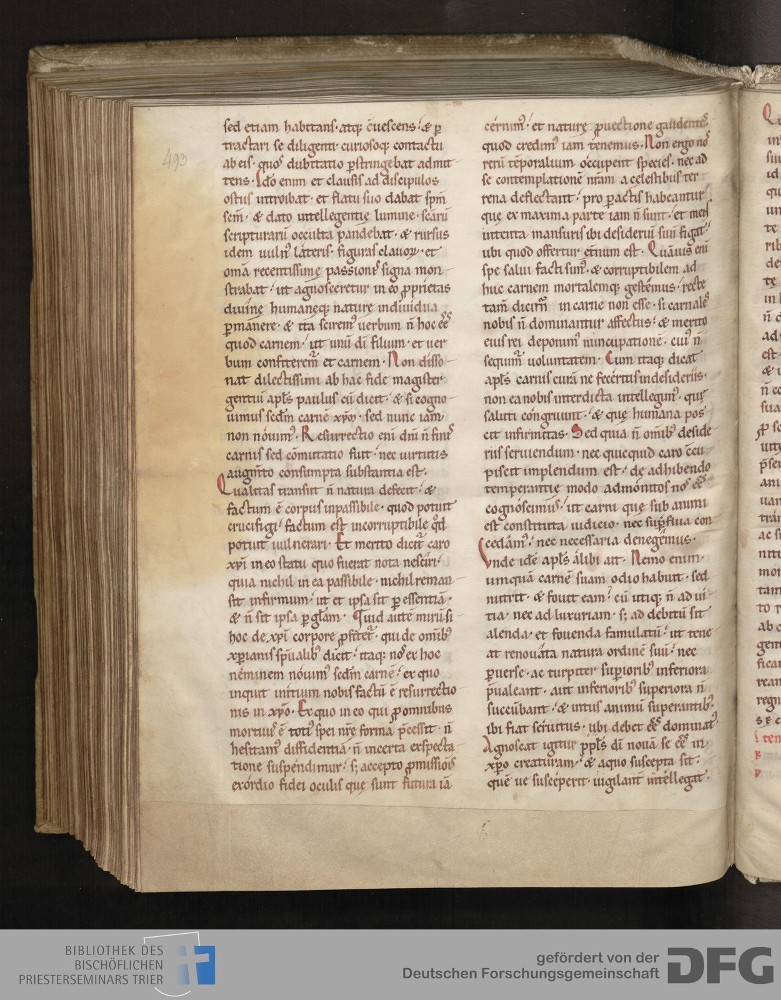 493
sed etiam habitans· atq; c̄uescens· & p̲
tractari se diligenti· curiosoq; contactu
ab eis· quos dubitatio p̲stringebat admit
tens· Ido enim et clausis ad discipulos
ostiis introibat· et flatu suo dabat sp̄m
sc̄m· & dato intellegentie lumine· sc̄arū
scripturarū occulta pandebat· & rursus
idem uuln' lateris· figuras clauoꝝ· et
om̄a recentissime passionis signa mon
strabat· ut agnosceretur in eo ꝓprietas
diuine humaneq; nature indiuidua
p̲manere· & ita scirem' uerbum n̄ hoc ēē
quod carnem· ut unū dī filium· et uer
bum confiterem̄ et carnem· Non disso
nat dilectissimi ab hac fide magister
gentiū apl̄s paulus cū dicit· & si cogno
uimus scd̄m carnē xp̄m· sed nunc iam
non nouim'· Resurrectio eni dn̄i n̄ finis
carnis sed cōmutatio fuit· nec uirtutis
augm̄to consumpta substantia est·
Qualitas transiit n̄ natura defecit· &
factum ē corpus inpassibile· quod potuit
crucifigi· factum est incorruptibile qd̄
potuit uulnerari· Et merito dicit̄ caro
xp̄i in eo statu quo fuerat nota nesciri·
quia nichil in ea passibile· nichil reman
sit infirmum· ut et ipsa sit p̲ essentiā·
& n̄ sit ipsa p̲ gl̄am· Quid aute mirū si
hoc de xp̄i corpore ꝓfitet̄· qui de omīb'
xp̄ianis sp̄ualib' dicit· itaq; nos ex hoc
neminem nouim' scd̄m carnē· ex quo
inquit initium nobis factū ē resurrectio
nis in xp̄o· Ex quo in eo qui ꝓ omnibus
mortuus ē toti' spei nr̄e forma p̄cessit· n̄
hesitam' diffidentia· n̄ incerta exspecta
tione suspendimur· s; accepto ꝓmissiōis
exordio fidei oculis que sunt futura iā
cernim'· et nature ꝓuectione gaudentes
quod credim' iam tenemus· Non ergo nos
rerū temporalium occupent species· nec ad
se contemplationē nr̄am a celestibus ter
rena deflectant· pro p̲actis habeantur
que ex maxima parte iam n̄ sunt· et mens
intenta mansuris ibi desideriū suū figat
ubi quod offertur et̄num est· Quāuis eni
spe salui facti sum'· & corruptibilem ad
huc carnem mortalemq; gestemus· recte
tam̄ dicim̄ in carne non esse· si carnales
nobis n̄ dominantur affectus· & merito
eius rei deponim' nuncupationē· cui' n̄
sequim̄ uoluntatem· Cum itaq; dicat
apl̄s carnis curā ne feceritis in desideriis·
non ea nobis interdicta intellegim'· que
saluti congruunt· & que humana pos
cit infirmitas· Sed quia n̄ omīb' deside
riis seruiendum· nec quicquid caro c̄cu
piscit implendum est· de adhibendo
temperantie modo admonitos nos ēē
cognoscimus· ut carni que sub animi
est constituta iudicio· nec sup̲flua con
cedam'· nec necessaria denegemus·
Vnde idē apl̄s alibi ait· Nemo enim
umquā carnē suam odio habuit· sed
nutrit· & fouet eam· cū utiq; n̄ ad ui
tia· nec ad luxuriam· s; ad debitū sit
alenda· et fouenda famulatū· ut tene
at renouata natura ordinē suū· nec
p̲uerse· ac turpiter sup̲iorib' inferiora
p̄ualeant· aut inferiorib' superiora n̄
succūbant· & uitiis animū superantib'
ibi fiat seruitus· ubi debet ēē dominat'
Agnoscat igitur ppl̄s dī nouā se ēē in
xp̄o creaturam· & a quo suscepta sit·
quē ue susceperit uigilant̄ intellegat·
BIBLIOTHEK DES
BISCHÖFLICHEN
PRIESTERSEMINARS TRIER
gefördert von der
Deutschen Forschungsgemeinschaft
DFG